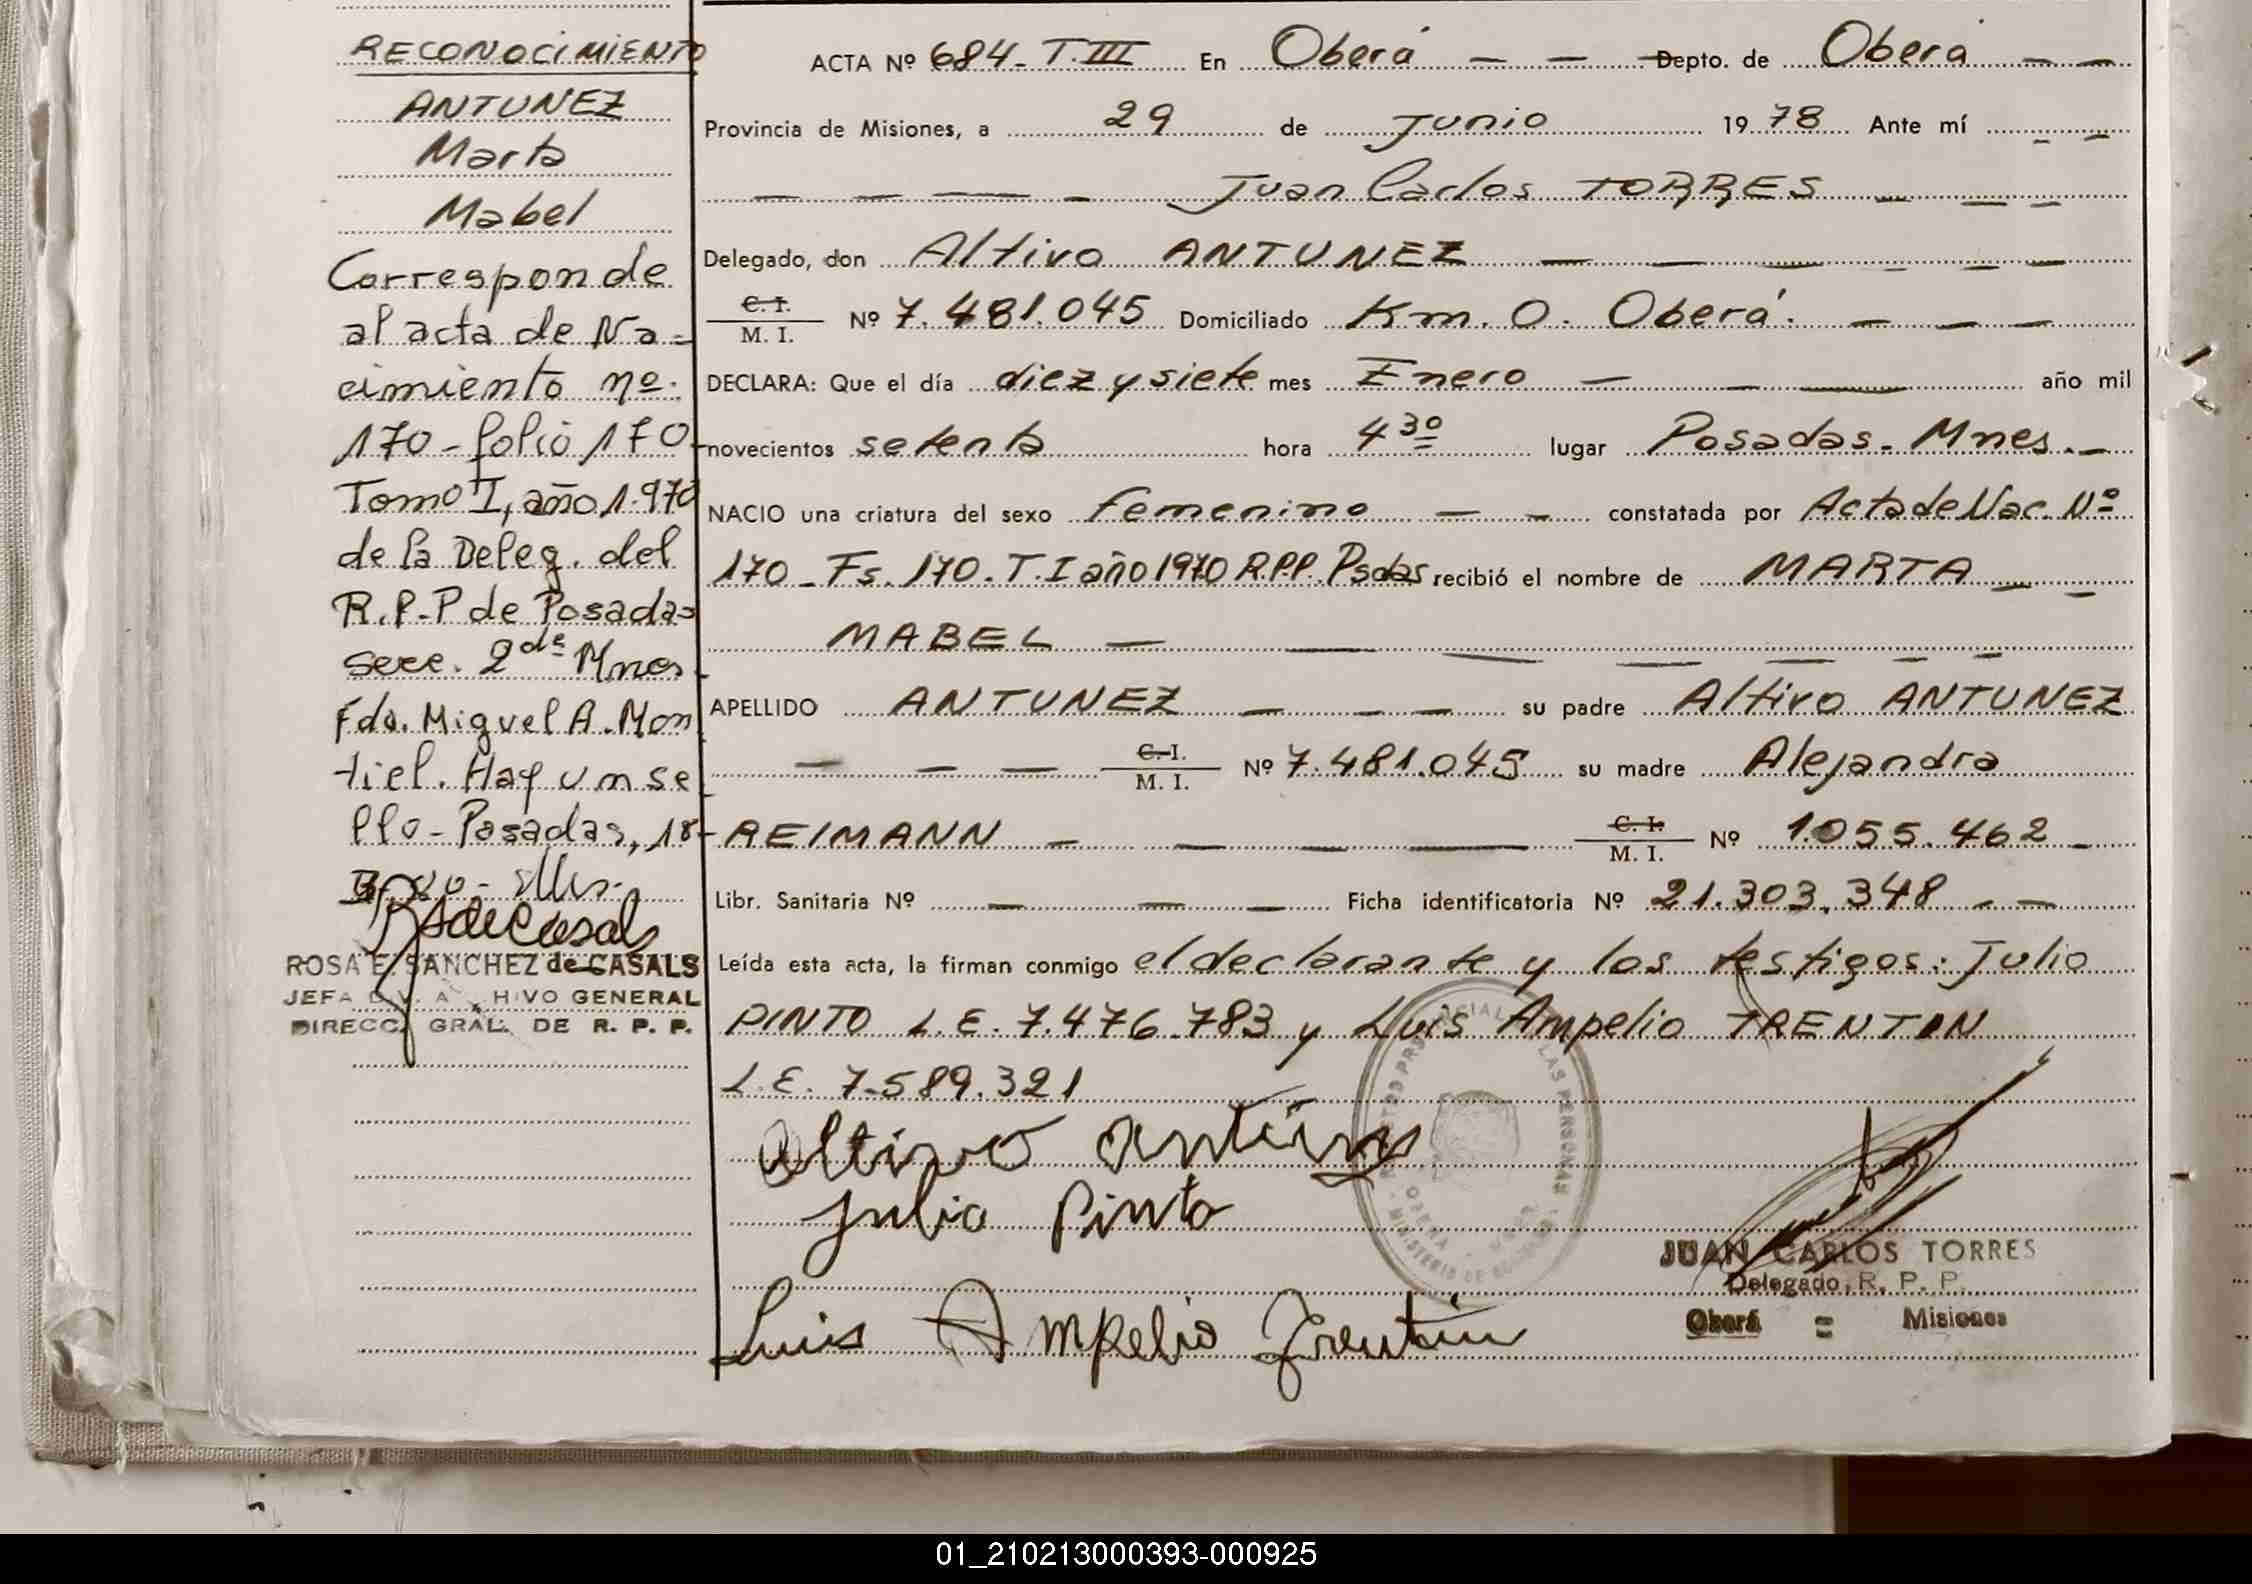 RECONOCIMIENTO
ANTUNEZ
Marta
Mabel
Corresponde
al acta de Na=
cimiento nº.
170 - folio 170-
Tomo I, año 1.970
de la Deleg. del
R.P.P de Posadas
Secc. 2da Mnes.
Fdo. Miguel A. Mon
tiel. Hay un se
llo - Posadas, 18-
ROSA E. SANCHEZ de CASALS
JEFA DIV. ARCHIVO GENERAL
DIRECC. GRAL. DE R. P. P.
ACTA Nº 684 - T. III En Oberá — — Depto. de Oberá — —
Provincia de Misiones, a 29 de junio 1978 Ante mí - -
— — — - Juan Carlos TORRES — — -
Delegado, don Altivo ANTUNEZ — — — - — —
C. I.
M. I. Nº 7.481.045 Domiciliado Km. 0. Oberá. — — —
DECLARA: Que el día diez y siete mes Enero — — — año mil
novecientos setenta hora 4 30 lugar Posadas. Mnes. —
NACIO una criatura del sexo femenino — — constatada por Acta de Nac. Nº
170 - Fs. 170. T. I año 1970 R.P.P. Psdas recibió el nombre de MARTA — -
MABEL — — — — — - -
APELLIDO ANTUNEZ — — — su padre Altivo ANTUNEZ
— — — C. I.
M. I. Nº 7.481.045 su madre Alejandra
REIMANN — — — — C. I.
M. I. Nº 1.055.462 -
Libr. Sanitaria Nº — — — Ficha identificatoria Nº 21.303.348 - —
Leída esta acta, la firman conmigo el declarante y los testigos: Julio
PINTO L.E. 7.476.783 y Luis Ampelio TRENTIN
L.E. 7.589.321
Altivo Antúnes
Julio Pinto
Luis Ampelio Trentin
JUAN CARLOS TORRES
Delegado, R. P. P.
Oberá = Misiones
01_210213000393-000925